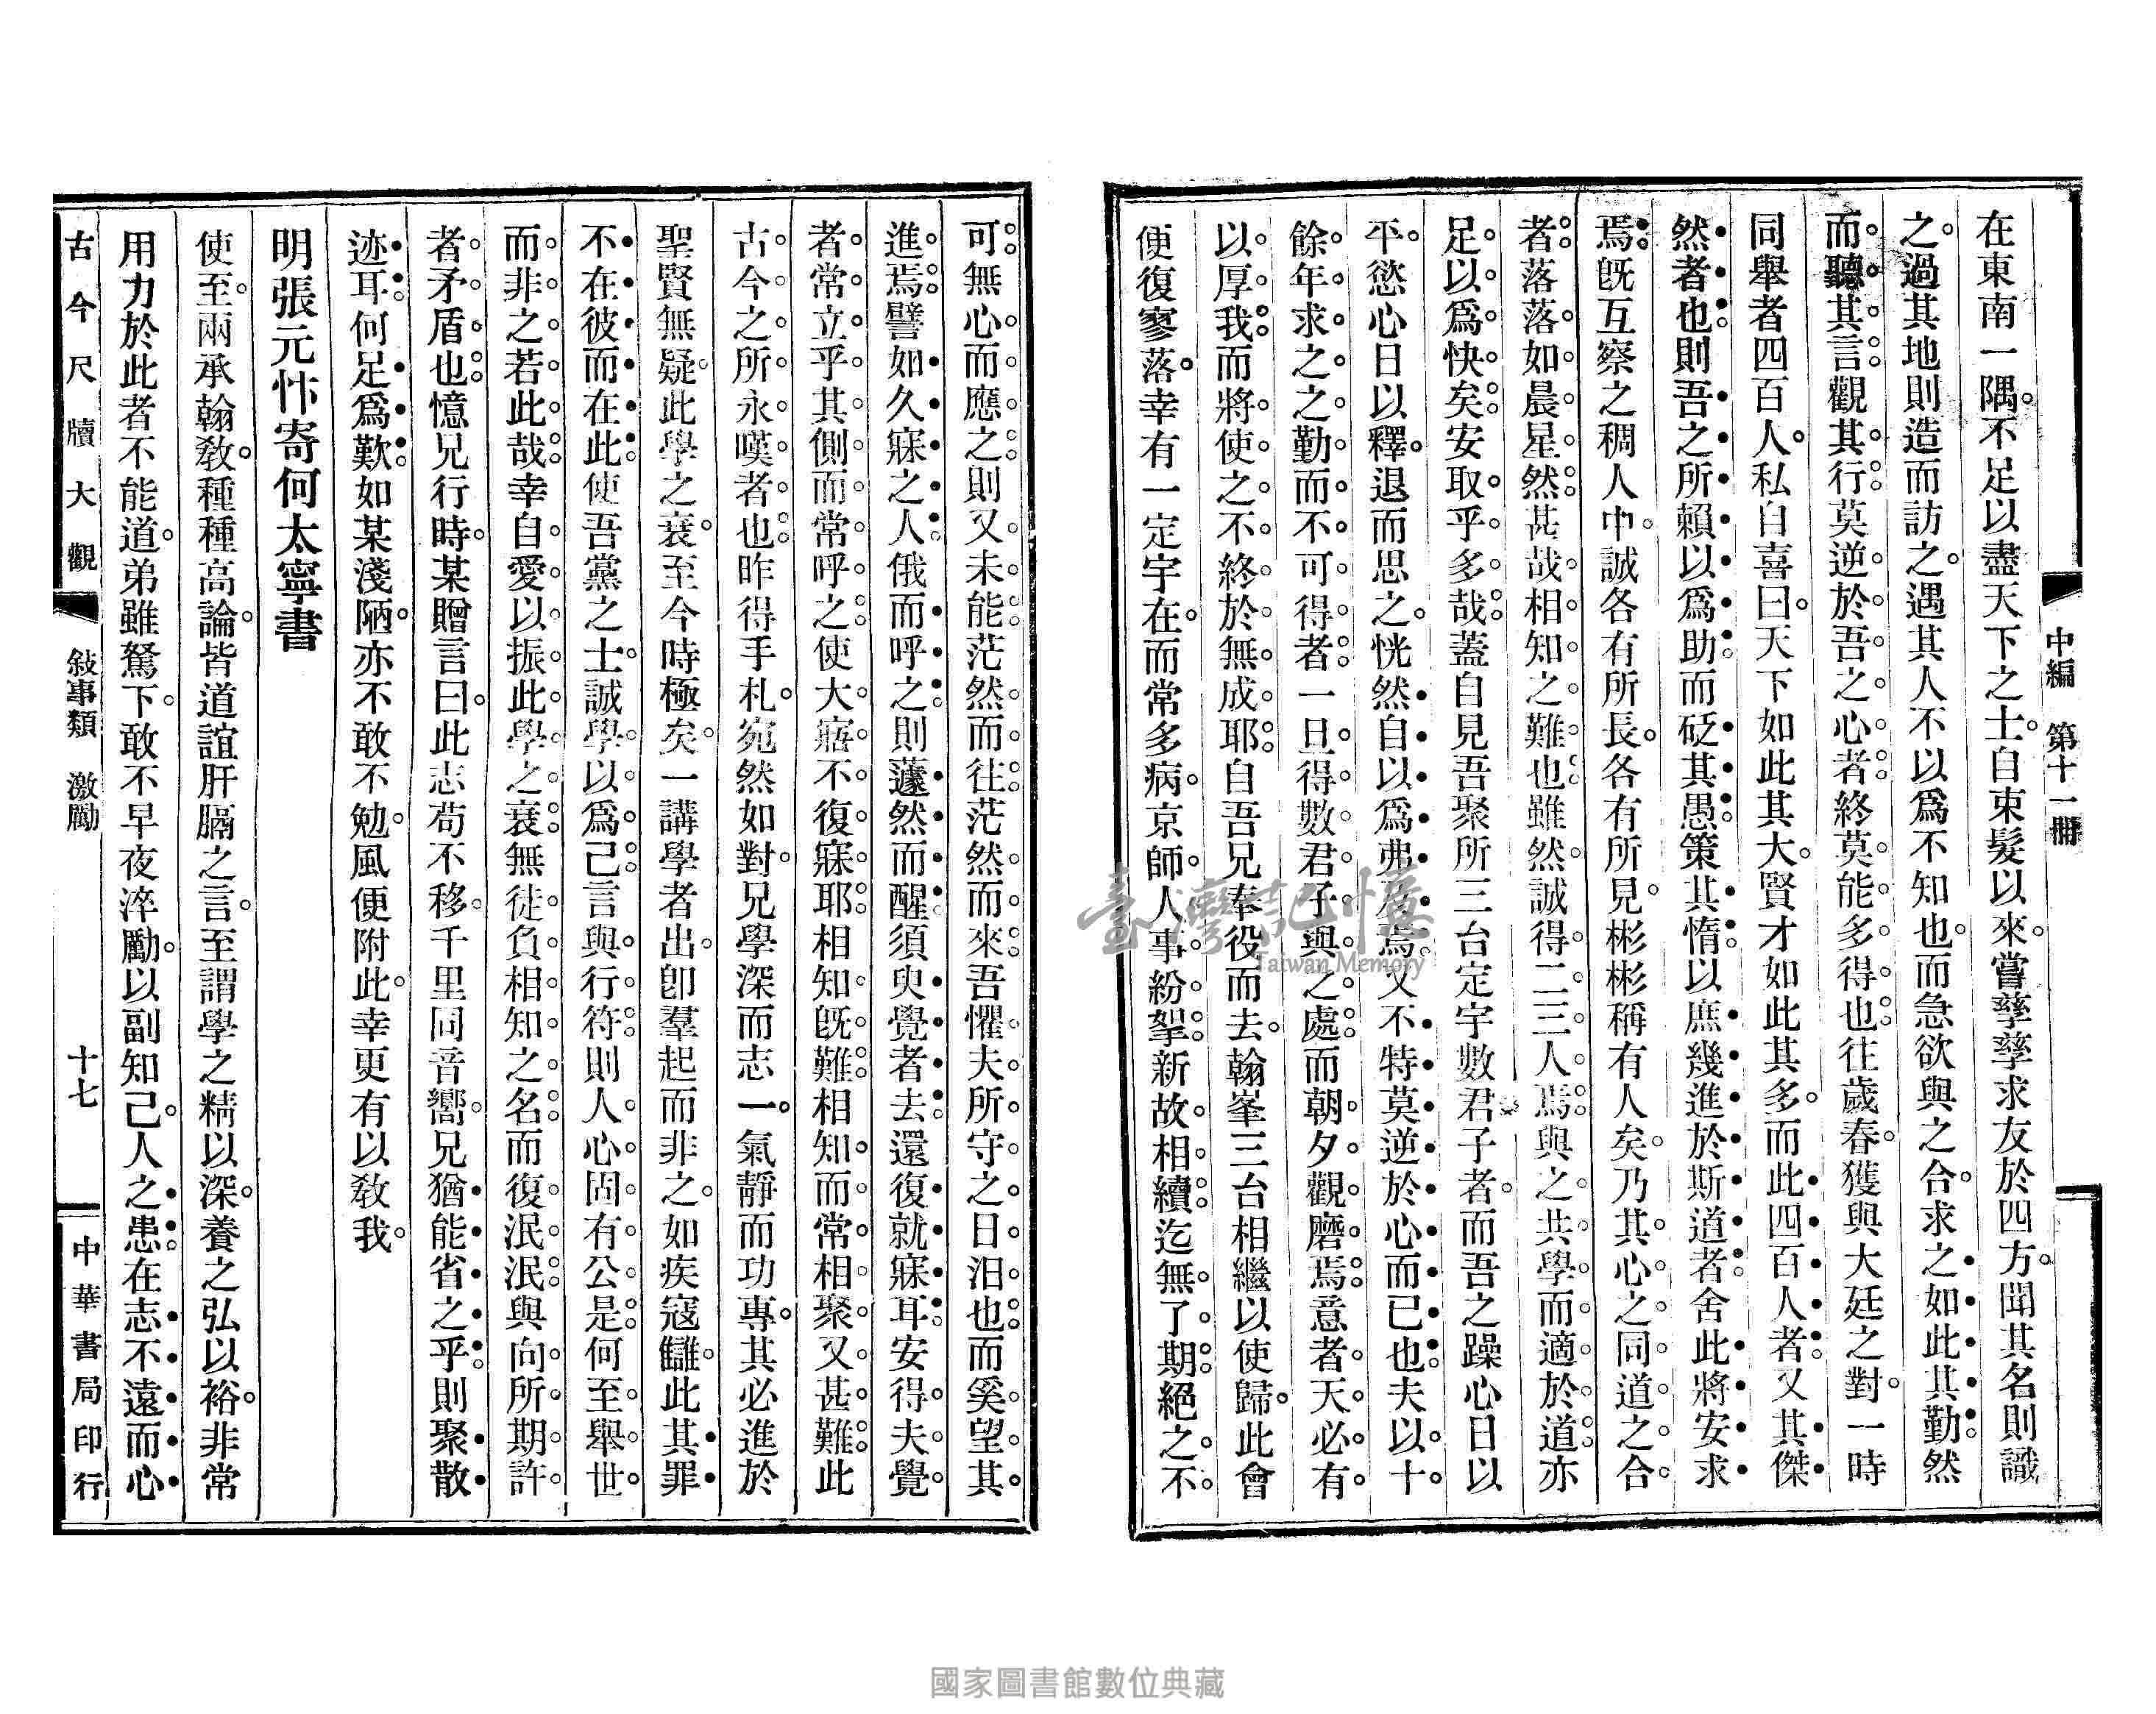 中編　第十一冊
在東南一隅。不足以盡天下之士。自束髮以來。嘗孳孳求友於四方。聞其名則識
之。過其地則造而訪之。遇其人不以爲不知也。而急欲與之合。求之如此其勤。然
而聽其言。觀其行。莫逆於吾之心者。終莫能多得也。往歲春。獲與大廷之對。一時
同舉者四百人。私自喜曰。天下如此其大。賢才如此其多。而此四百人者。又其傑
然者也。則吾之所賴以爲助。而砭其愚。策其惰。以庶幾進於斯道者。舍此將安求
焉。旣互察之稠人中。誠各有所長。各有所見。彬彬稱有人矣。乃其心之同道之合
者。落落如晨星然。甚哉相知之難也。雖然。誠得二三人焉。與之共學而適於道。亦
足以爲快矣。安取乎多哉。蓋自見吾聚所三台定宇數君子者。而吾之躁心日以
平。慾心日以釋。退而思之。恍然自以爲弗及焉。又不特莫逆於心而已也。夫以十
餘年求之之勤而不可得者。一旦得數君子與之處。而朝夕觀磨焉。意者天必有
以厚我。而將使之不終於無成耶。自吾兄奉役而去。翰峯三台相繼以使歸。此會
便復寥落。幸有一定宇在。而常多病。京師人事紛挐。新故相續。迄無了期。絕之不
可。無心而應之。則又未能。茫然而往。茫然而來。吾懼夫所守之日汨也。而奚望其
進焉。譬如久寐之人。俄而呼之。則蘧然而醒。須臾覺者去。還復就寐耳。安得夫覺
者常立乎其側。而常呼之。使大寤不復寐耶。相知旣難。相知而常相聚又甚難。此
古今之所永嘆者也。昨得手札。宛然如對。兄學深而志一。氣靜而功專。其必進於
聖賢無疑。此學之衰。至今時極矣。一講學者出。卽羣起而非之。如疾寇讎。此其罪
不在彼而在此。使吾黨之士。誠學以爲己。言與行符。則人心固有公是。何至舉世
而非之若此哉。幸自愛以振此學之衰。無徒負相知之名。而復泯泯與向所期許
者矛盾也。憶兄行時。某贈言曰。此志苟不移。千里同音嚮。兄猶能省之乎。則聚散
迹耳。何足爲歎。如某淺陋。亦不敢不勉。風便附此。幸更有以敎我。
明張元忭寄何太寧書
使至。兩承翰敎。種種高論。皆道誼肝膈之言。至謂學之精以深。養之弘以裕。非常
用力於此者不能道。弟雖駑下。敢不早夜淬勵。以副知己。人之患在志不遠而心
古今尺牘大觀　敍事類　激勵　十七　中華書局印行
臺灣記憶
Taiwan Memory
國家圖書館數位典藏